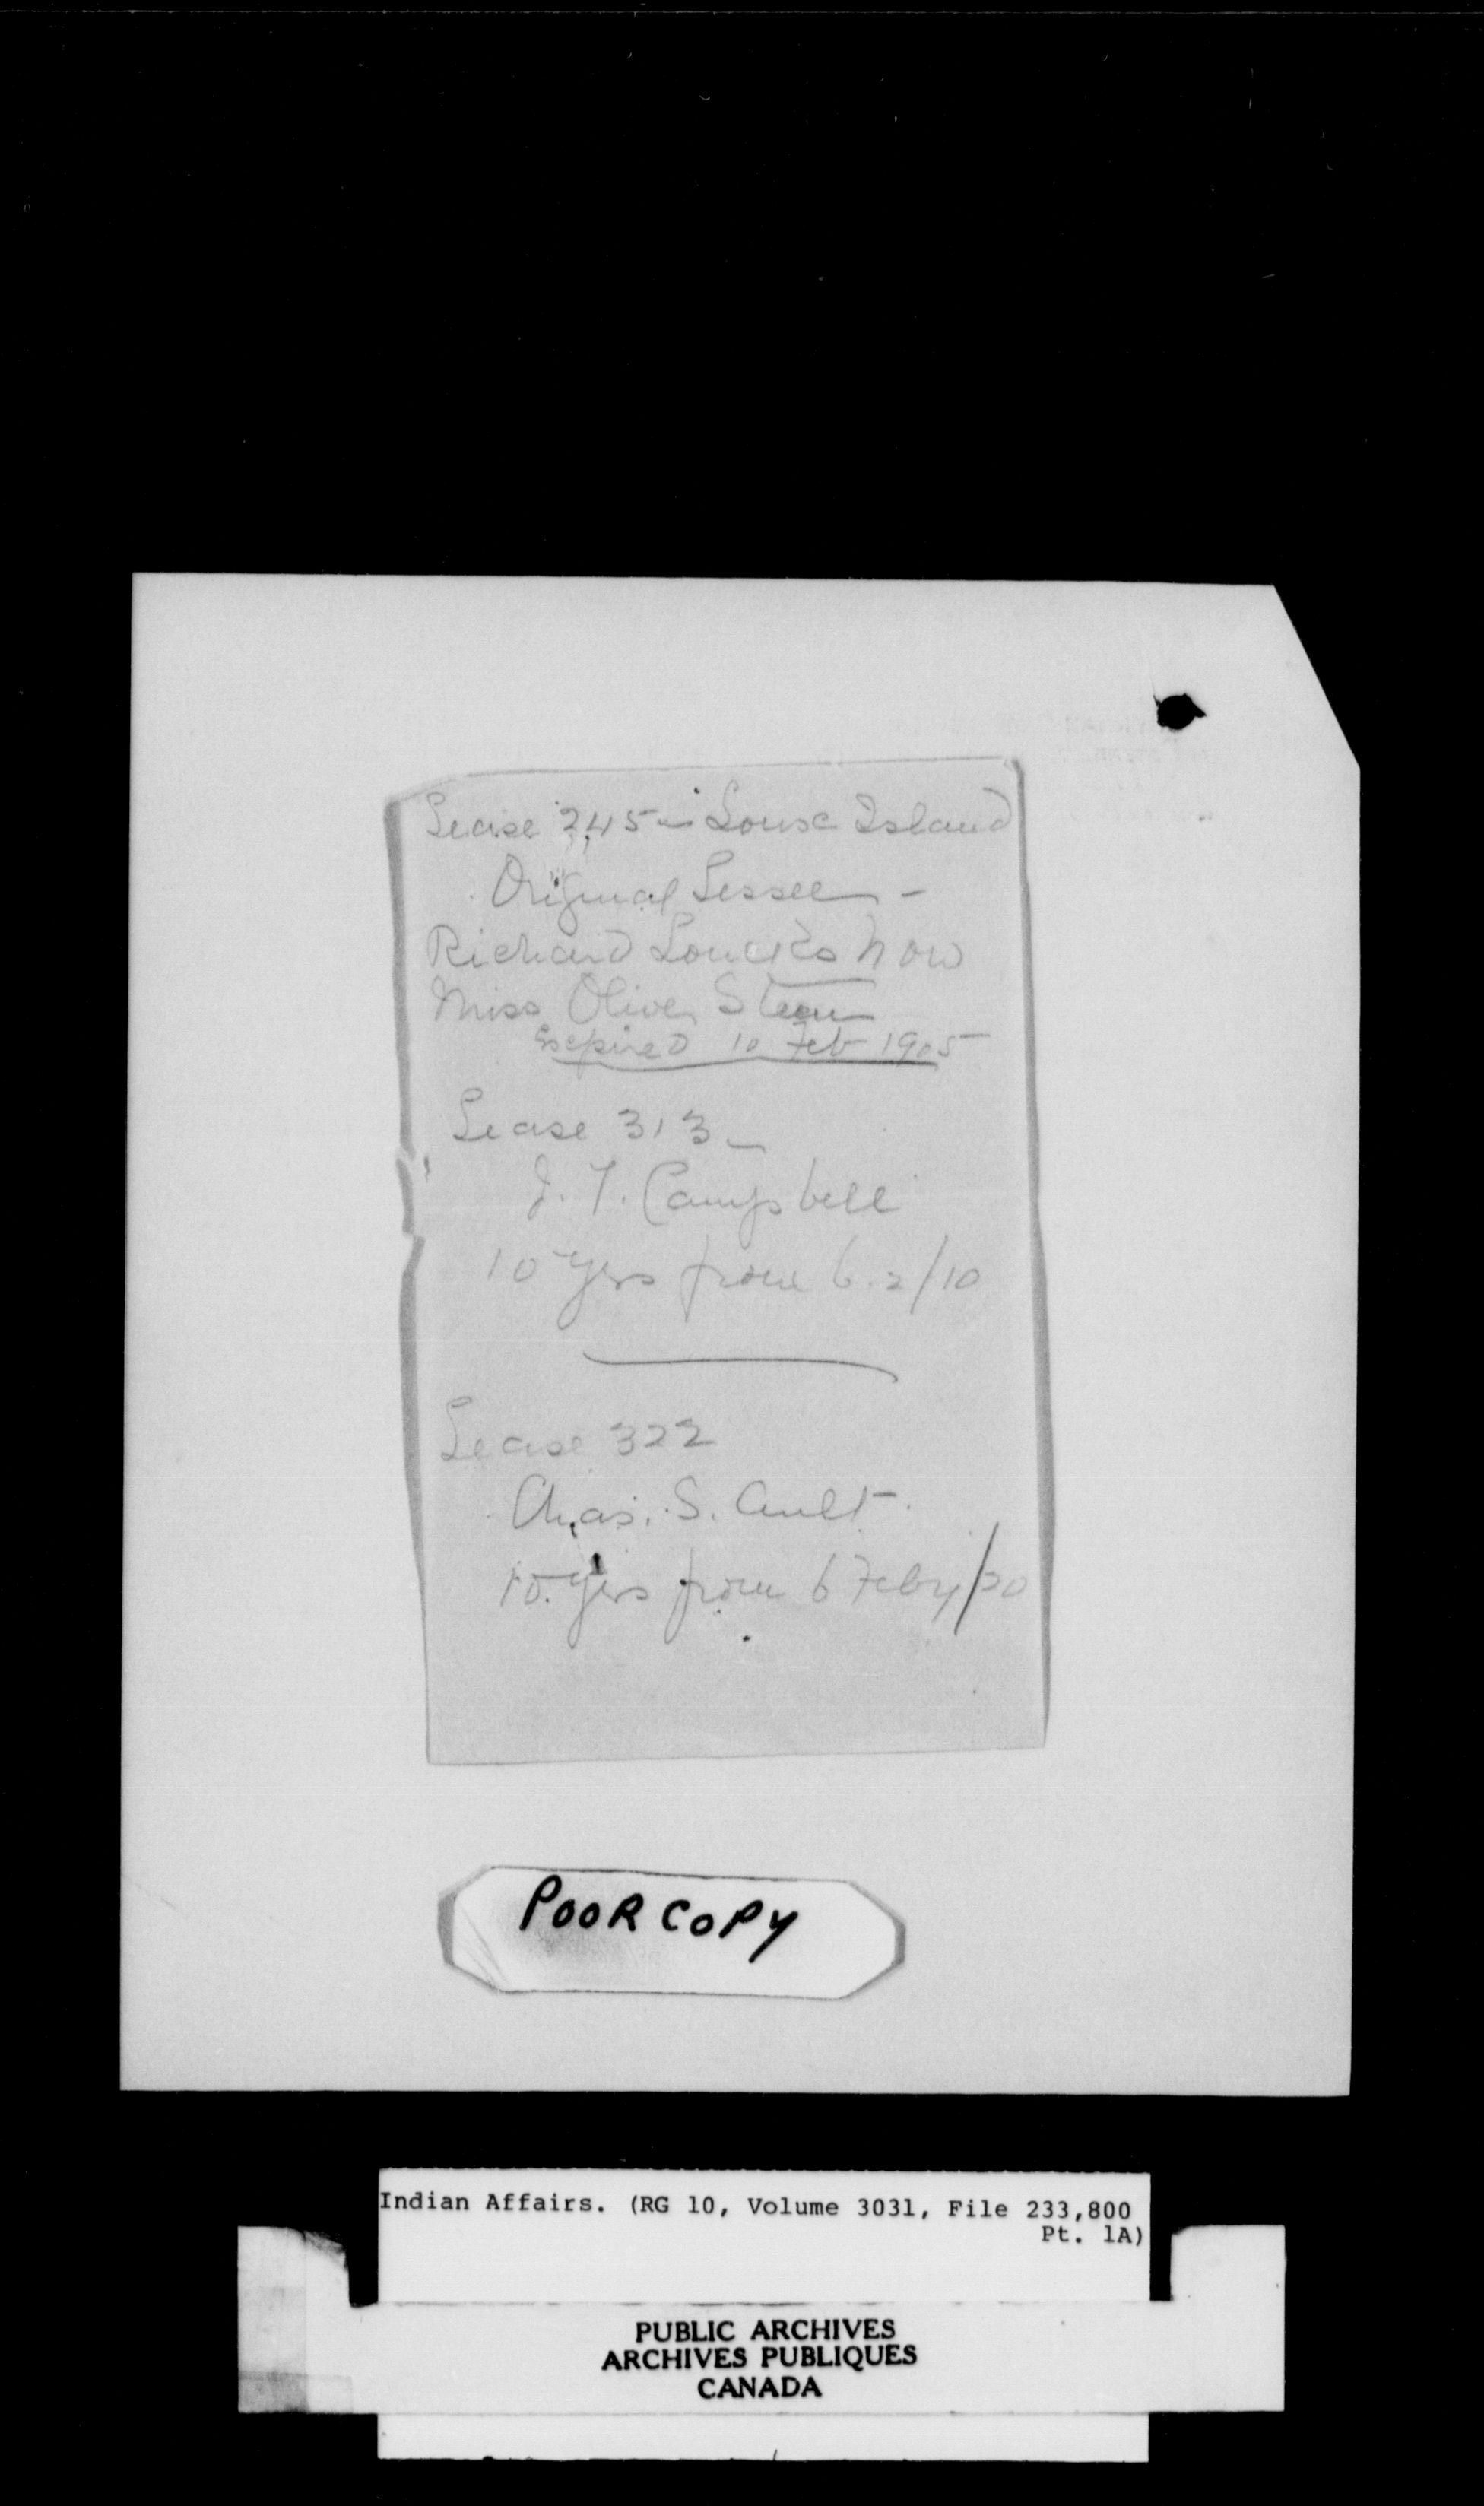 Lease 245 - Louse Island
Original Lessee -
Richard Loucks now
Miss Olive Steen
Expired 10 Feb 1905
Lease 313 -
J. T. Campbell
10 yrs from 6.2/10
Lease 322
Chas. S. Ault.
10 yrs from 6 Feby/20
POOR COPY
Indian Affairs. (RG 10, Volume 3031, File 233,800
Pt. 1A)
PUBLIC ARCHIVES
ARCHIVES PUBLIQUES
CANADA